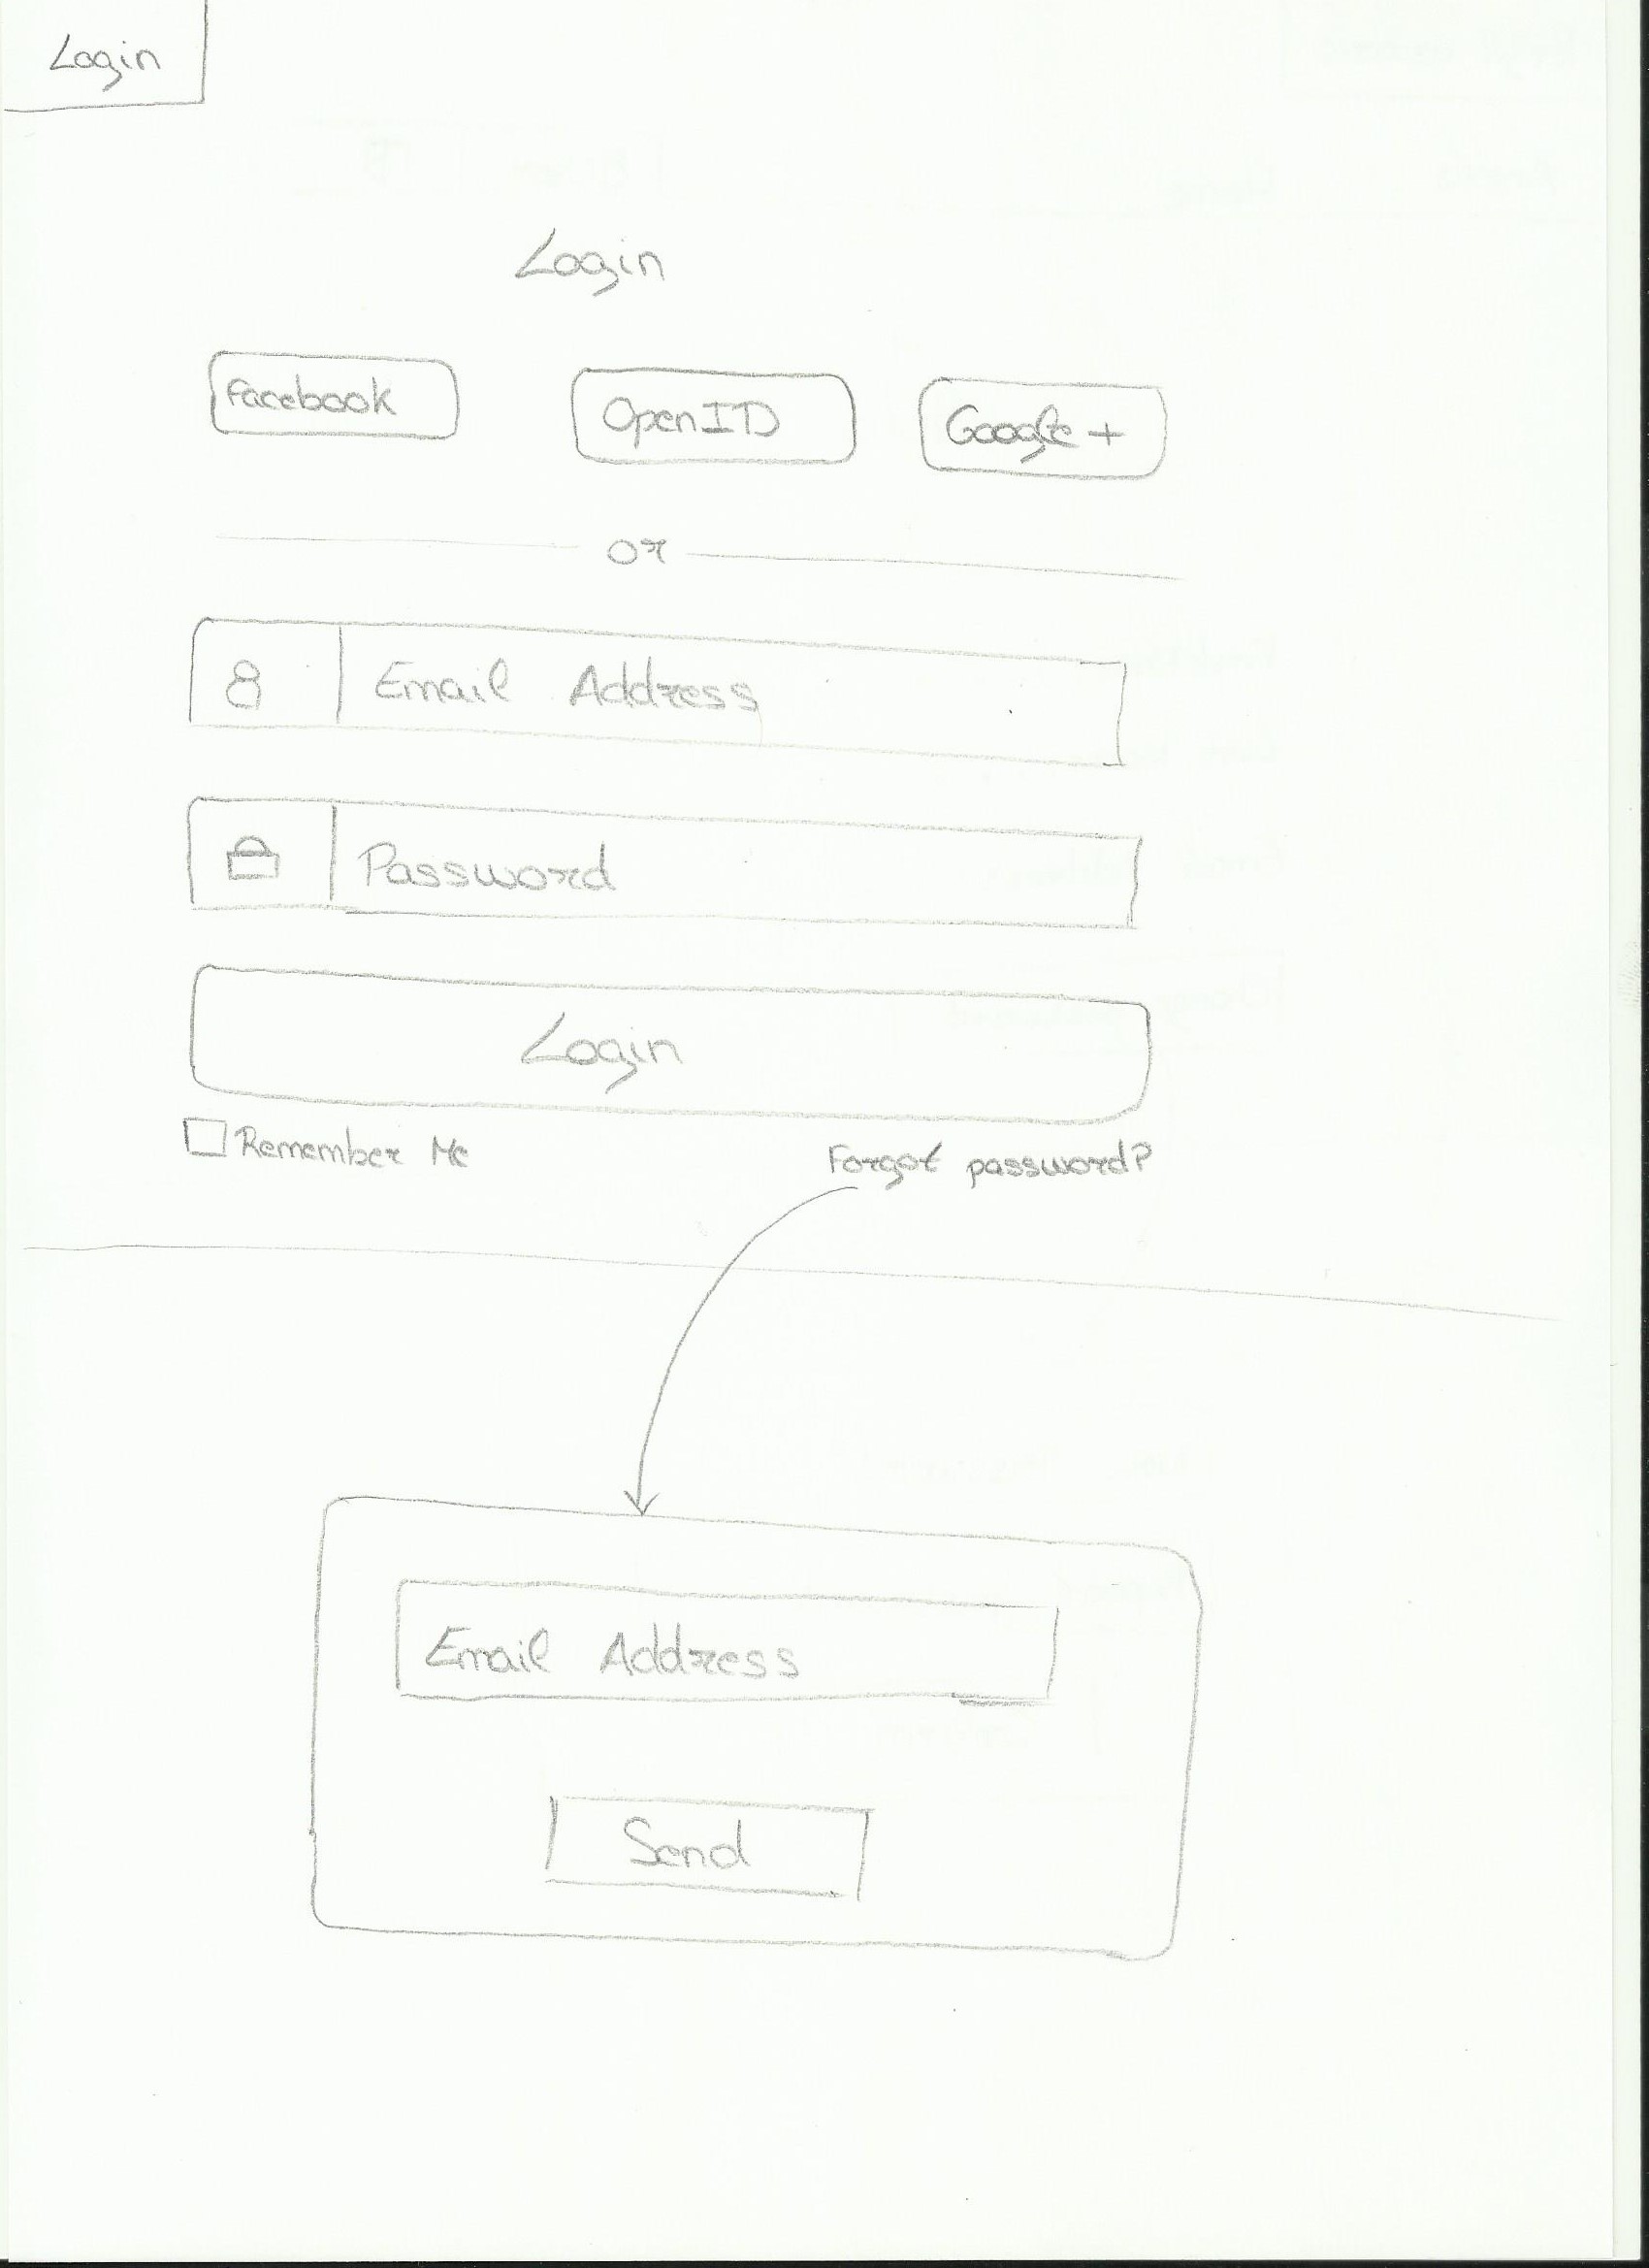 Login
Login
Facebook OpenID Google+
or
Email Address
Password
Login
Remember Me Forgot password?
Email Address
Send